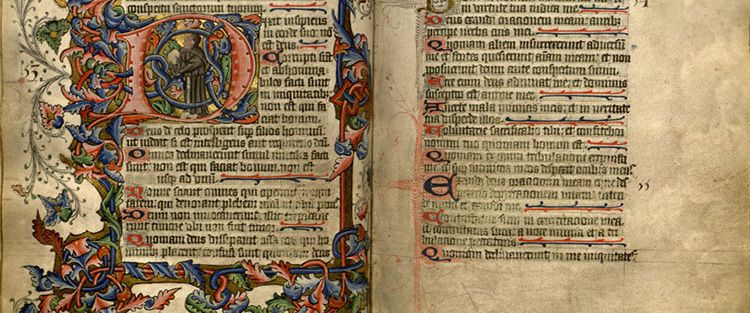 conspectu sanctorum tuorum
ixit insipiens
in corde suo: no
est deus.
Corrupti sunt
et abhomina
biles facti sunt
in iniquitatib
non est qui fa
ciat bonum.
Deus de celo prospexit sup filios hominu
ut videat si est intelligens aut requirens deu
Omnes declinaverunt simul inutiles facti
sunt non est qui faciat bonum non est
usq ad unum
Nonne scient omnes qui operantur iniqui
tatem: qui devorant plebem meam ut cibu pani
Deum non invocaverunt: illic trepidave
runt timore ubi non fuit timor.
Quoniam deus dissipavit ossa eor qui ho
minib placent: confusi sunt quoniam deus
54
iudica me
Deus exaudi orationem meam: aurib
percipe verba oris mei
Quoniam alieni insurrexerunt adversu
me et fortes quesierunt aiam meam: et non
proposuerunt deum ante conspectum suum.
Ecce enim deus adiuvat me: et dominus
susceptor est anime mee
Averte mala inimicis meis: et in veritate
tua disperde illos.
Voluntarie sacrificabo tibi: et confitebor
nomini tuo quoniam bonum est
Quoniam ex omni tribulatione eripuisti
me: et super inimicos meos despexit oculus meus
Exaudi deus orationem meam et ne des
deprecationem meam: intende
michi et exaudi me
55
Contristatus sum in exercitatione mea
et conturbatus sum: a voce inimici et a tri
bulatione peccatoris
Quoniam declinaverunt in me iniquitates